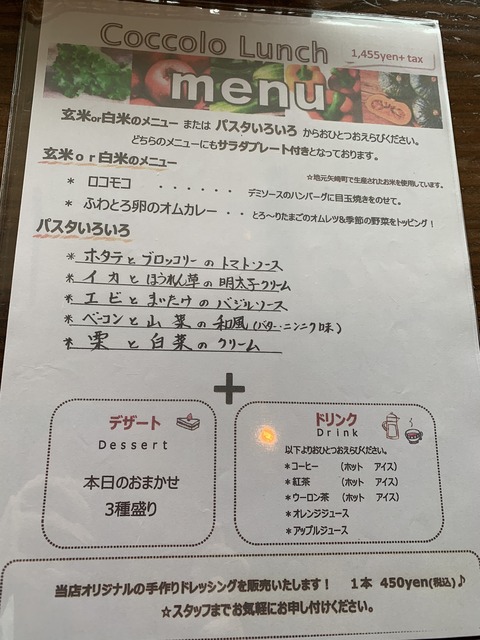 Coccolo Lunch
1,455yen+ tax
menu
玄米or白米のメニュー または パスタいろいろ からおひとつおえらびください。
どちらのメニューにもサラダプレート付きとなっております。
玄米or白米のメニュー
☆地元矢崎町で生産されたお米を使用しています。
* ロコモコ ・・・・・・ デミソースのハンバーグに目玉焼きをのせて。
* ふわとろ卵のオムカレー ・・ とろ～りたまごのオムレツ&季節の野菜をトッピング!
パスタいろいろ
* ホタテとブロッコリーのトマトソース
* イカとほうれん草の明太子クリーム
* エビとまいたけのバジルソース
* ベーコンと山菜の和風(バター・ニンニク味)
* 栗と白菜のクリーム
+
デザート
Dessert
本日のおまかせ
3種盛り
ドリンク
Drink
以下よりおひとつおえらびください。
*コーヒー (ホット アイス)
*紅茶 (ホット アイス)
*ウーロン茶 (ホット アイス)
*オレンジジュース
*アップルジュース
当店オリジナルの手作りドレッシングを販売いたします! 1本 450yen(税込)♪
☆スタッフまでお気軽にお申し付けください。